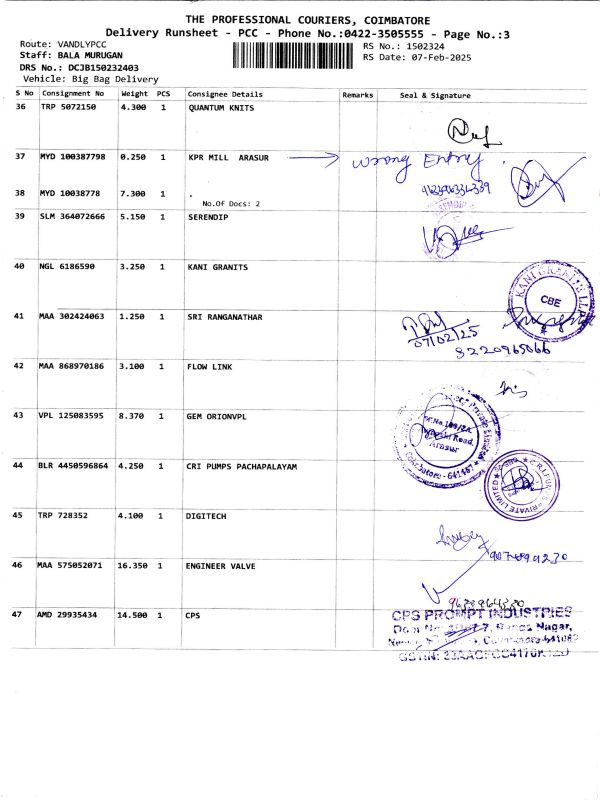 THE PROFESSIONAL COURIERS, COIMBATORE
Delivery Runsheet - PCC - Phone No.:0422-3505555 - Page No.:3
Route: VANDLYPCC
RS No.: 1502324
Staff: BALA MURUGAN
RS Date: 07-Feb-2025
DRS No.: DCJB150232403
Vehicle: Big Bag Delivery
S No Consignment No Weight PCS Consignee Details Remarks Seal & Signature
36 TRP 5072150 4.300 1 QUANTUM KNITS
37 MYD 100387798 0.250 1 KPR MILL ARASUR Wrong Entry.
38 MYD 10038778 7.300 1 .
No.Of Docs: 2
39 SLM 364072666 5.150 1 SERENDIP
40 NGL 6186590 3.250 1 KANI GRANITS
KANI GRANITS LLP
CBE
41 MAA 302424063 1.250 1 SRI RANGANATHAR
07/02/25
8220965066
42 MAA 868970186 3.100 1 FLOW LINK
43 VPL 125083595 8.370 1 GEM ORIONVPL
Road,
Arasur
Coimbatore - 641407
44 BLR 4450596864 4.250 1 CRI PUMPS PACHAPALAYAM
PRIVATE LIMITED
45 TRP 728352 4.100 1 DIGITECH
46 MAA 575052071 16.350 1 ENGINEER VALVE
47 AMD 29935434 14.500 1 CPS
CPS PROMPT INDUSTRIES
Nagar,
GSTIN: